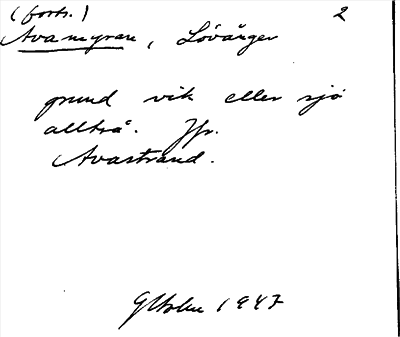 (forts.) 2
Avamyran, Lövånger
grund vik eller sjö
alltså. Jfr.
Avastrand.
1947